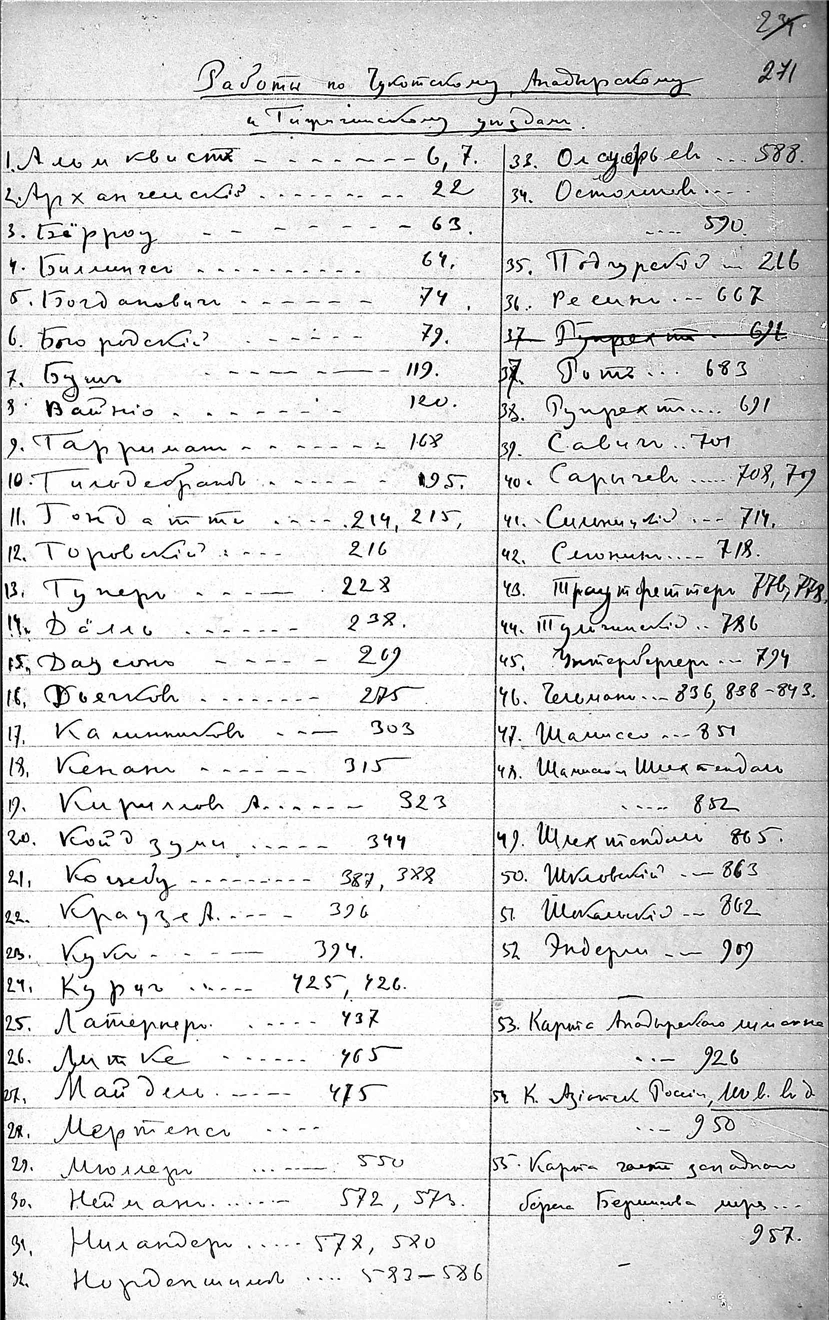 271
Работы по Чукотскому, Анадырскому
и Гижигинскому уездам.
1. Альмквистъ - - - - - - - 6, 7.
2. Архангельскій - - - - - - 22
3. Бёрроу - - - - - - - 63.
4. Биллингсъ - - - - - - - - 64.
5. Богдановичъ - - - - - 74.
6. Богородскій - - - - - 79.
7. Бушъ - - - - - - - 119.
8. Вайніо - - - - - - 120.
9. Гарриманъ - - - - - - 168
10. Гильдебрандъ - - - - - 195.
11. Гондатти - - - - 214, 215,
12. Горовскій - - - 216
13. Гукеръ - - - - 228
14. Дâлль - - - - - - 238.
15. Даусонъ - - - - - 269
16. Дьячковъ - - - - - - 275
17. Калинниковъ - - - 303
18. Кенанъ - - - - - 315
19. Кирилловъ А. - - - - - 323
20. Койдзуми - - - - - 344
21. Коцебу - - - - - - - - 387, 388
22. Краузе А. - - - - 390
23. Кукъ - - - - 394.
24. Курчъ - - - - - 425, 426.
25. Латернеръ - - - - 437
26. Литке - - - - - - 465
27. Майдель - - - - 475
28. Мертенсъ - - - -
29. Мюллеръ - - - - - 550
30. Нейманъ - - - - - 572, 573.
31. Ниландеръ - - - - - 578, 580
32. Норденшильдъ - - - - 583–586
33. Олсуфьевъ - - - 588.
34. Остолоповъ - - - -
- - - - 590.
35. Подгурскій - - 216
36. Ресинъ - - - 667
37 Рупрехтъ - 691
37. Ротъ - - - 683
38. Рупрехтъ - - - - 691
39. Савичъ - - 701
40. Сарычевъ - - - - - 708, 709
41. Сильницкій - - - 714.
42. Слюнинъ - - - - 718.
43. Траутфеттеръ 776, 778.
44. Тульчинскій - - 786
45. Унтербергеръ - - - 794
46. Чельманъ - - - 836, 838–843.
47. Шамиссо - - - 851
48. Шамиссо и Шлехтендаль
- - - - 852
49. Шлехтендаль 865.
50. Шкловскій - - - 863
51. Шокальскій - - 862
52. Эндерли - - - 909
53. Карта Анадырского лимана
- - - 926
54. К. Азіатск. Россіи,
- - - 950
55. Карта части западнаго
берега Берингова моря - - -
957.